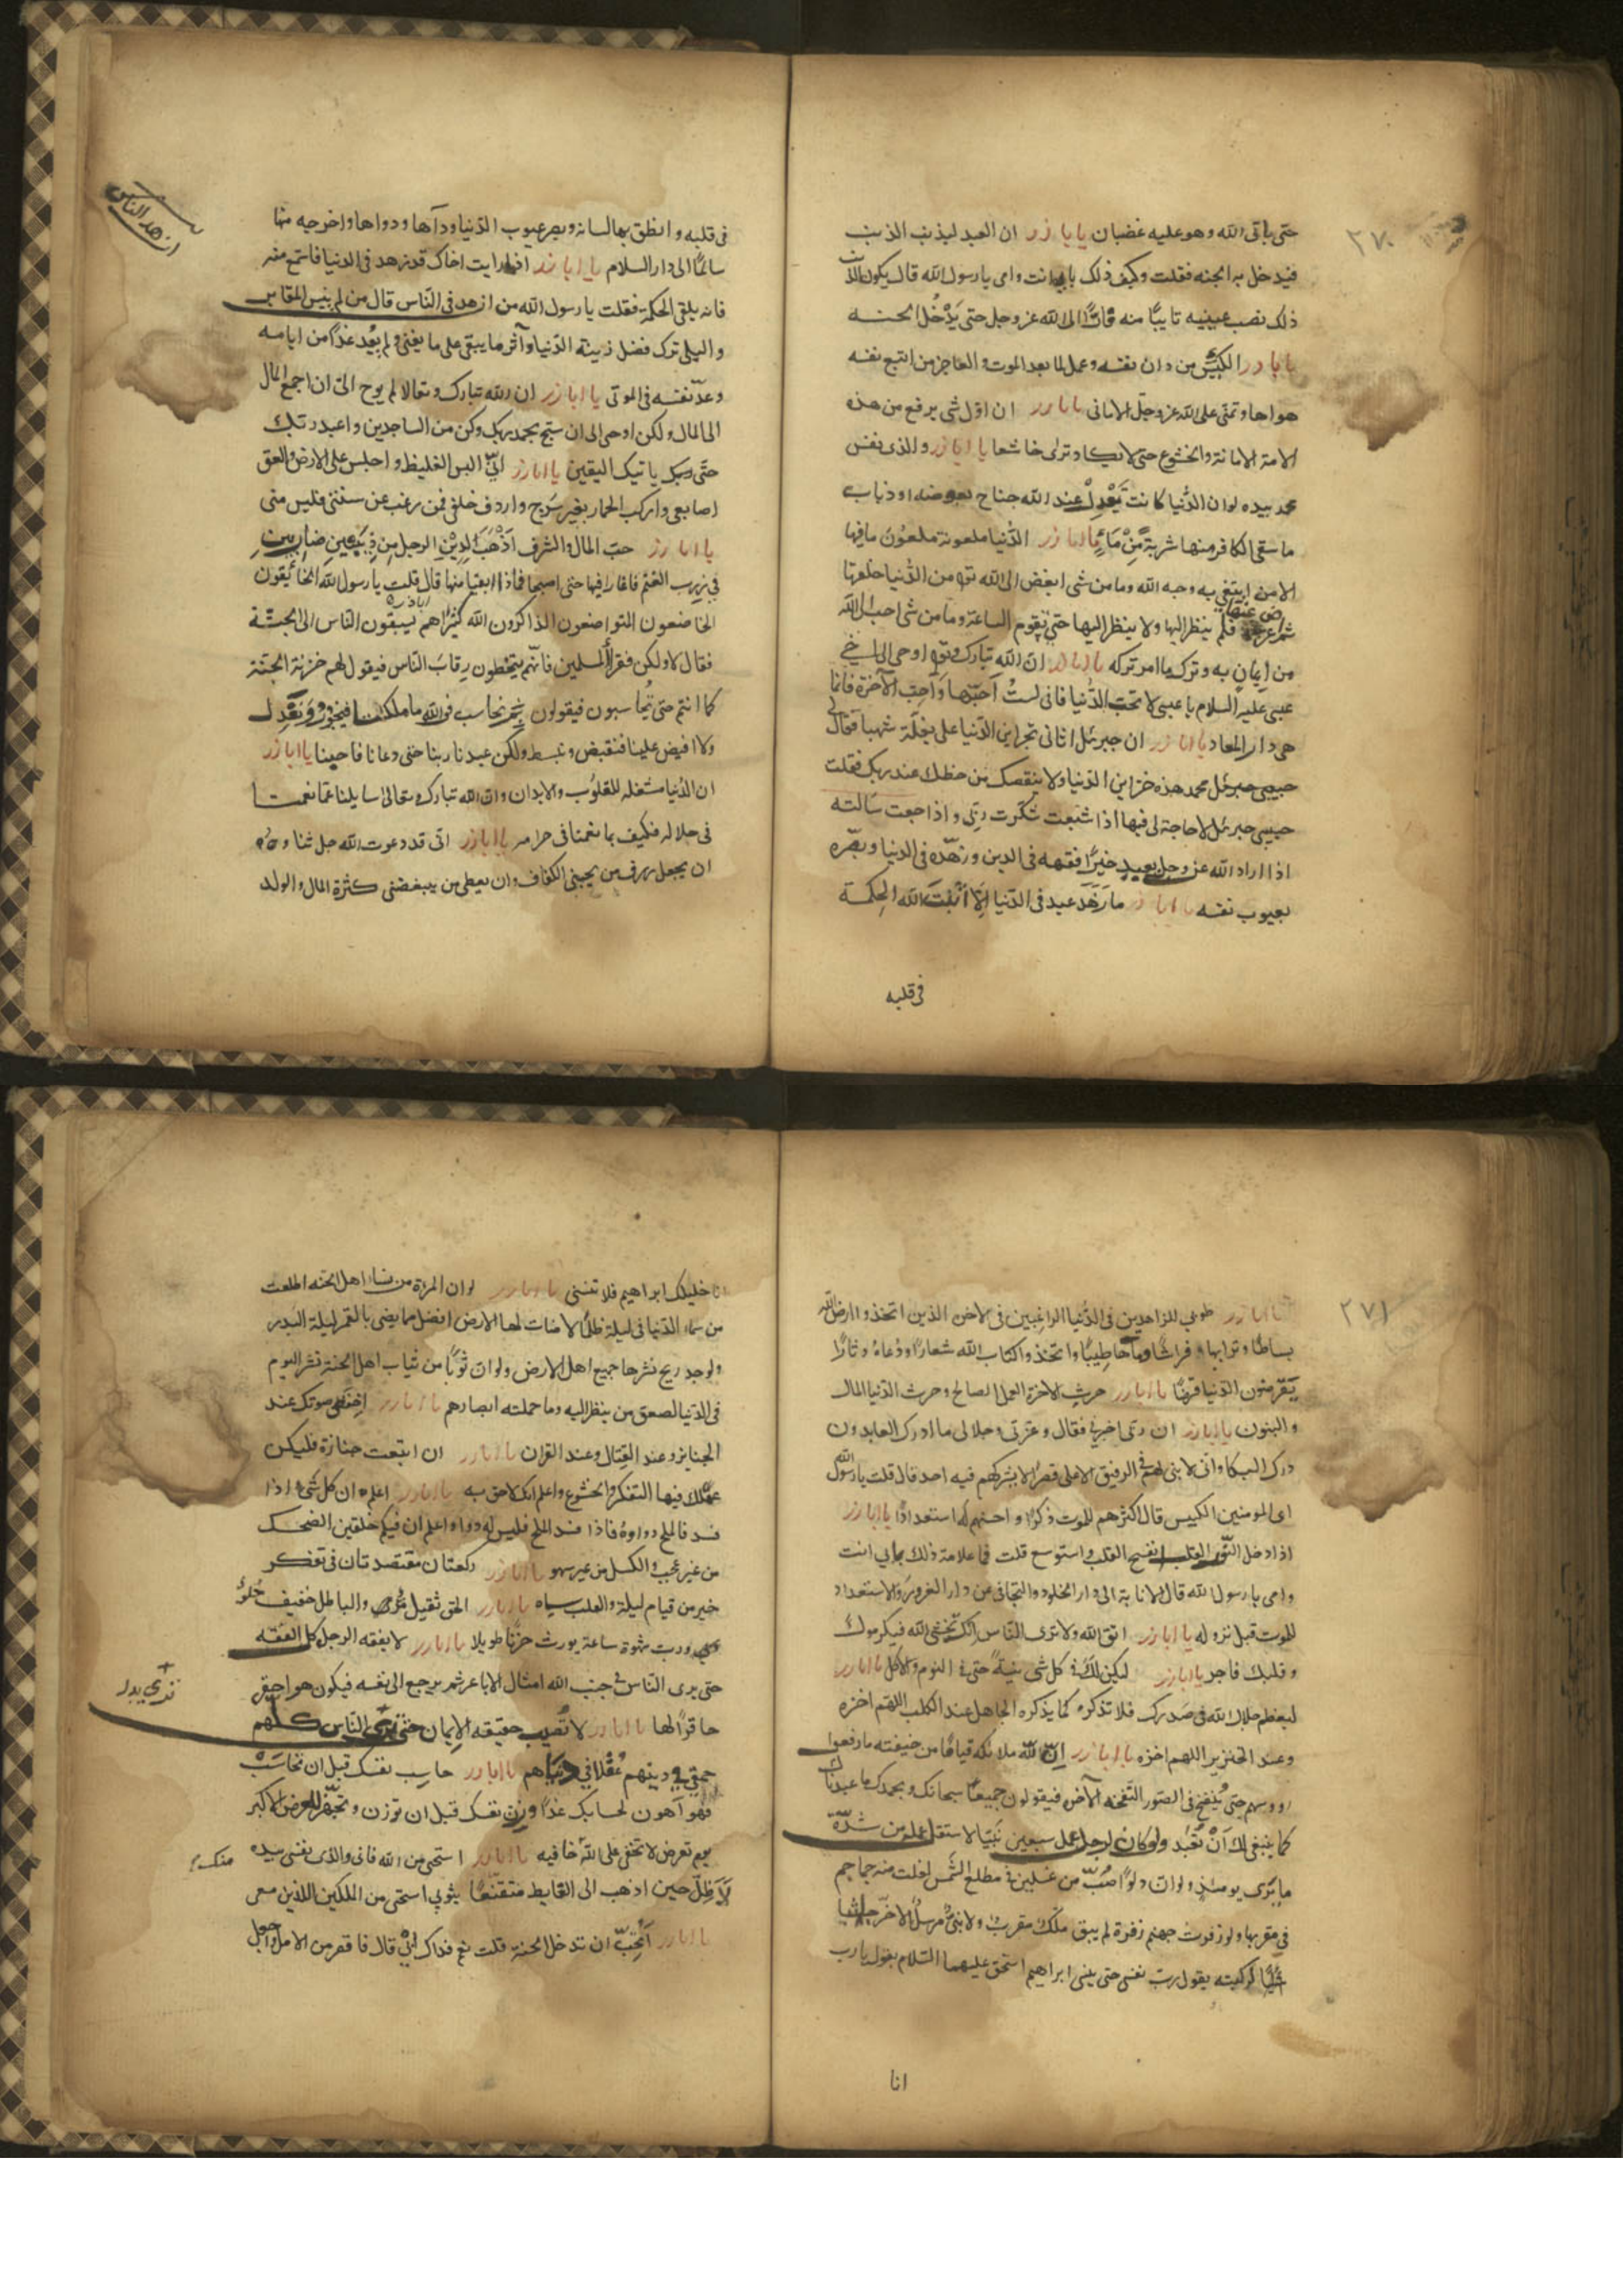 ٢٧٠
حتى ياتى الله وهو عليه غضبان يا با ذر ان العبد ليذنب الذنب
فيدخل به الجنه فقلت وكيف ذلك بابى انت وامى يا رسول الله قال يكون الذنب
ذلك نصب عينيه تايبًا منه فارًّا الى الله عز وجل حتى يَدْخُل الجنه
يا با ذر الكيّس من دان نفسه وعمل لما بعد الموت والعاجز من اتبع نفسه
هواها وتمنى على الله عز وجل الامانى يا با ذر ان اول شى يرفع من هذه
الامة الامانة والخشوع حتى لا يكاد ترى خاشعا يا ابا ذر والذى نفس
محمد بيده لو ان الدُّنيا كانت تَعْدِلْ عند الله جناح بعوضه او ذباب
ما سقى الكافر منها شربةً مِنْ مَاءٍ يا ابا ذر الدُّنيا ملعونة ملعُون ما فيها
الا من ابتغى به وجه الله وما من شى ابغض الى الله تع من الدُّنيا خلقها
ثم عرض عنها فلم ينظر اليها ولا ينظر اليها حتى تقوم الساعة وما من شى احب الى الله
من اِيمانٍ به وترك ما امر تركه يا ابا ذر ان الله تبارك وتع اوحى الى اخى
عيسى عليه السلام يا عيسى لا تحب الدُّنيا فانى لستُ اُحبّها وَاَحِبّ الآخرة فانما
هى دار المعاد يا ابا ذر ان جبرئل اتانى بخزاين الدّنيا على بغلَة شهبا فقال لى
حبيبى جبرئل محمد هذه خزاين الدّنيا ولا ينقصك من حظك عند ربك فقلت
حبيبى جبرئل لا حاجة لى فيها اذا شبعت شكرت ربّى واذا جعت سَالته
اذا اراد الله عز وجل بعبدٍ خيرًا فقهه فى الدين وزهّده فى الدنيا وبصّره
بعيوب نفسه يا ابا ذر ما زَهَدَ عبد فى الدّنيا اِلّا اَنْبَتَ الله الحِكمة
فى قلبه
ازهد الناس
فى قلبه وانطق بها لسانه وبصر عيوب الدّنيا ودآها ودواها واخرجه منها
سالمًا الى دار السلام يا ابا ذر اذا رايت اخاك قد زهد فى الدنيا فاستمع منه
فانه يلقى الحكمة فقلت يا رسول الله من ازهد فى النّاس قال من لم ينس المقابر
والبلى وترك فضل زينة الدّنيا وآثر ما يبقى على ما يفنى ولم يعُد غدًا من ايامه
وعدّ نفسه فى الموتى يا ابا ذر ان الله تبارك وتعالا لم يوح الىّ ان اجمع المال
الى المال ولكن اوحى الى ان سبّح بحمد ربك وكن من الساجدين واعبد ربّك
حتّى ياتيك اليقين يا ابا ذر انّى البس الغليظ واجلس على الارض والعق
اصابعى واركب الحمار بغير سَرج واردف خلفى فمن رغب عن سنتى فليس منى
يا ابا ذر حبّ المال والشرف اَذْهَبَ لِدِيْنِ الرجل مِن ذِئبَينِ ضاريين
فى زرب الغنم فاغارا فيها حتى اصبحا فماذا ابقيا منها قال قلت يا رسول الله الخائفون
الخاضعون المتواضعون الذاكرون الله كثيرًا هم يسبقون النّاس الى الجنّة
فقال لا ولكن فقرآ المسلمين فانّهم يتخطون رِقابَ النّاس فيقول لهم خزنة الجنّة
كما انتم حتى تُحاسبون فيقولون بِمَ نحاسب فوالله ما ملكنا فيخُور وَنعْدِل
ولا افيض علينا فنقبض ونبسط ولكن عبدنا ربنا حتى دعانا فاجبنا يا ابا ذر
ان الدُنيا مشغله للقلُوب والابدان وان الله تبارك وتعالى سايلنا عمّا نعمنا
فى حلاله فكيف بما نعمنا فى حرامه يا ابا ذر انى قد دعوت الله جل ثناوءه
ان يجعل رزق من يحبنى الكفاف وان يعطى من يبغضنى كثرة المال والولد
٢٧١
يا ابا ذر طوبى للزاهدين فى الدُّنيا الراغبين فى الاخره الذين اتخذوا ارض الله
بساطًا وترابها فراشًا وماَءَها طِيبًا واتخذوا كتاب الله شعارًا ودُعاءهُ دثارًا
يَقرضون الدّنيا قرضًا يا ابا ذر حرث الاخرة العمل الصالح وحرث الدّنيا المال
والبنون يا ابا ذر ان ربى اخبرنى فقال وعزتى وجلالى ما ادرك العابدون
درك البكا وانى لابنى لهم فى الرفيق الاعلى قصرًا لا يشركهم فيه احد قال قلت يا رسول الله
اى المومنين اكيس قال اكثرهم للموت ذكرًا واحسنهم له استعدادًا يا ابا ذر
اذا دخل النّور القلب انفسح القلب واستوسع قلت فما علامة ذلك بابى انت
وامى يا رسول الله قال الانابة الى دار الخلود والتجافى عن دار الغرور والاستعداد
للموت قبل نزوله يا ابا ذر اتق الله ولا ترى النّاس انّك تخشى الله فيكرموك
وقلبك فاجر يا ابا ذر ليكن لك فى كل شى نيةً حتى فى النوم والاكل يا ابا ذر
ليعظم جلال الله فى صَدرك فلا تذكره كما يذكره الجاهل عند الكلب اللهم اخزه
وعند الخنزير اللهم اخزه يا ابا ذر انّ لله ملائكه قيامًا من خيفته ما رفعوا
رووسهم حتى يُنفخ فى الصور النّفخه الآخره فيقولون جميعًا سبحانك وبحمدك ما عبدناك
كما ينبغى لك اَنْ تُعْبَد ولو كان لرجل عمل سبعين نبيّا لاستقل عمله من شدّة
ما يَرى يومئذٍ ولو ان دلوًا صُبّ من غسلين فى مطلع الشَّمس لغلت منه جماجم
فى مغربها ولو زفرت جهنم زفرة لم يبق ملَك مقرب ولا نبىّ مرسل الا خرّ جاثيا
جُثيًّا لركبته يقول رب نفسى حتى ينسى ابراهيم اسحق عليهما السّلام يقول يا رب
انا
انا خليلك ابراهيم فلا تنسنى يا ابا ذر لو ان المرءة من نسا اهل الجنه اطلعت
من سماء الدّنيا فى ليلة ظلماء لاضات لها الارض افضل مما يضى بالقمر ليلة البَدر
ولوجد ريح نشرها جميع اهل الارض ولو ان ثوبًا من ثياب اهل الجنة نشر اليوم
فى الدّنيا لصعق من ينظر اليه وما حملته ابصارهم يا ابا ذر اخفض صوتك عند
الجنايز وعند القِتال وعند القران يا ابا ذر ان اتبعت جنازة فليكن
عَملك فيها التفكر والخشوع واعلم انّك لاحق به يا ابا ذر اعلم ان كل شىء اذا
فسد فالملح دواوهُ فاذا فسد الملح فليس له دواء واعلم ان فيكم خلقين الضحك
من غير عجب والكسل من غير سهو يا ابا ذر ركعتان مقتصدتان فى تفكر
خير من قيام ليلة والقلب سياه يا ابا ذر الحق ثقيل مُرٌ والباطل خفيف حُلوٌ
ورب شهوة ساعة يورث حزنًا طويلا يا ابا ذر لا يفقه الرجل كل الفقه
حتى يرى النّاس فى جنب الله امثال الاباعر ثم يرجع الى نفسه فيكون هو احقر
حاقرٍ لها يا ابا ذر لا تُصيب حقيقه الاِيمان حتى ترى النّاس كلهم
حمقى فى دينهم عُقلاَ فى دنياهم يا ابا ذر حاسِب نفسك قبل ان تحَاسَبَ
فهو اَهون لحسابك غدًا وزن نفسك قبل ان توزن وتجهّز للعرض الاكبر
يوم تعرض لا تخفى على الله خافيه يا ابا ذر استحى من الله فانى والذى نفسى بيده
لاَظَلّ حين اذهب الى الغايط متقنّعًا بثوبى استحى من الملكين اللذين معى
يا ابا ذر اَتُحِبّ ان تدخل الجنة قلت نعم فداك ابى قال فاقصر من الامل واجعل